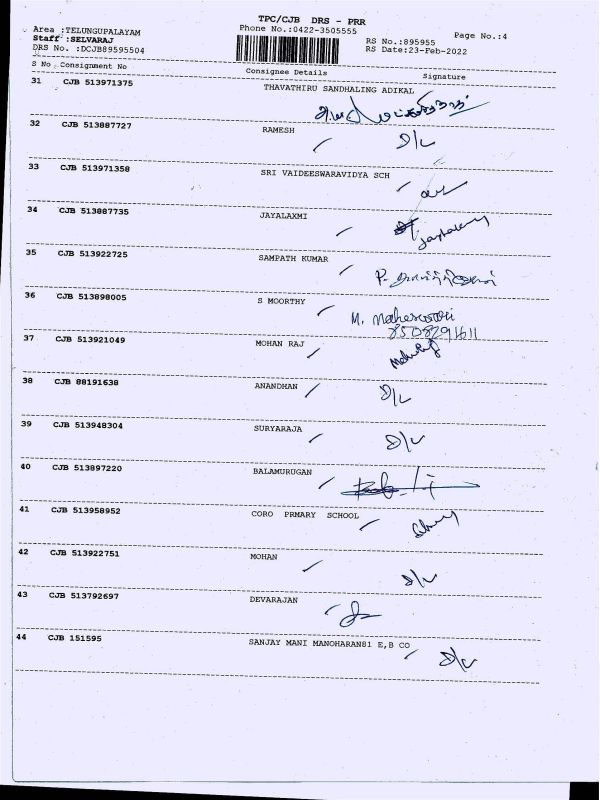 TPC/CJB DRS - PRR
Area :TELUNGUPALAYAM
Phone No.:0422-3505555
Page No.:4
Staff :SELVARAJ
RS No.:895955
DRS No. :DCJB89595504
RS Date:23-Feb-2022
S No Consignment No Consignee Details Signature
31 CJB 513971375 THAVATHIRU SANDHALING ADIKAL
32 CJB 513887727 RAMESH
D/L
33 CJB 513971358 SRI VAIDEESWARAVIDYA SCH
34 CJB 513887735 JAYALAXMI
35 CJB 513922725 SAMPATH KUMAR
36 CJB 513898005 S MOORTHY
M. Maheswari
8508291611
37 CJB 513921049 MOHAN RAJ
38 CJB 88191638 ANANDHAN
D/L
39 CJB 513948304 SURYARAJA
D/L
40 CJB 513897220 BALAMURUGAN
41 CJB 513958952 CORO PRMARY SCHOOL
42 CJB 513922751 MOHAN
D/L
43 CJB 513792697 DEVARAJAN
44 CJB 151595 SANJAY MANI MANOHARAN81 E,B CO
D/L